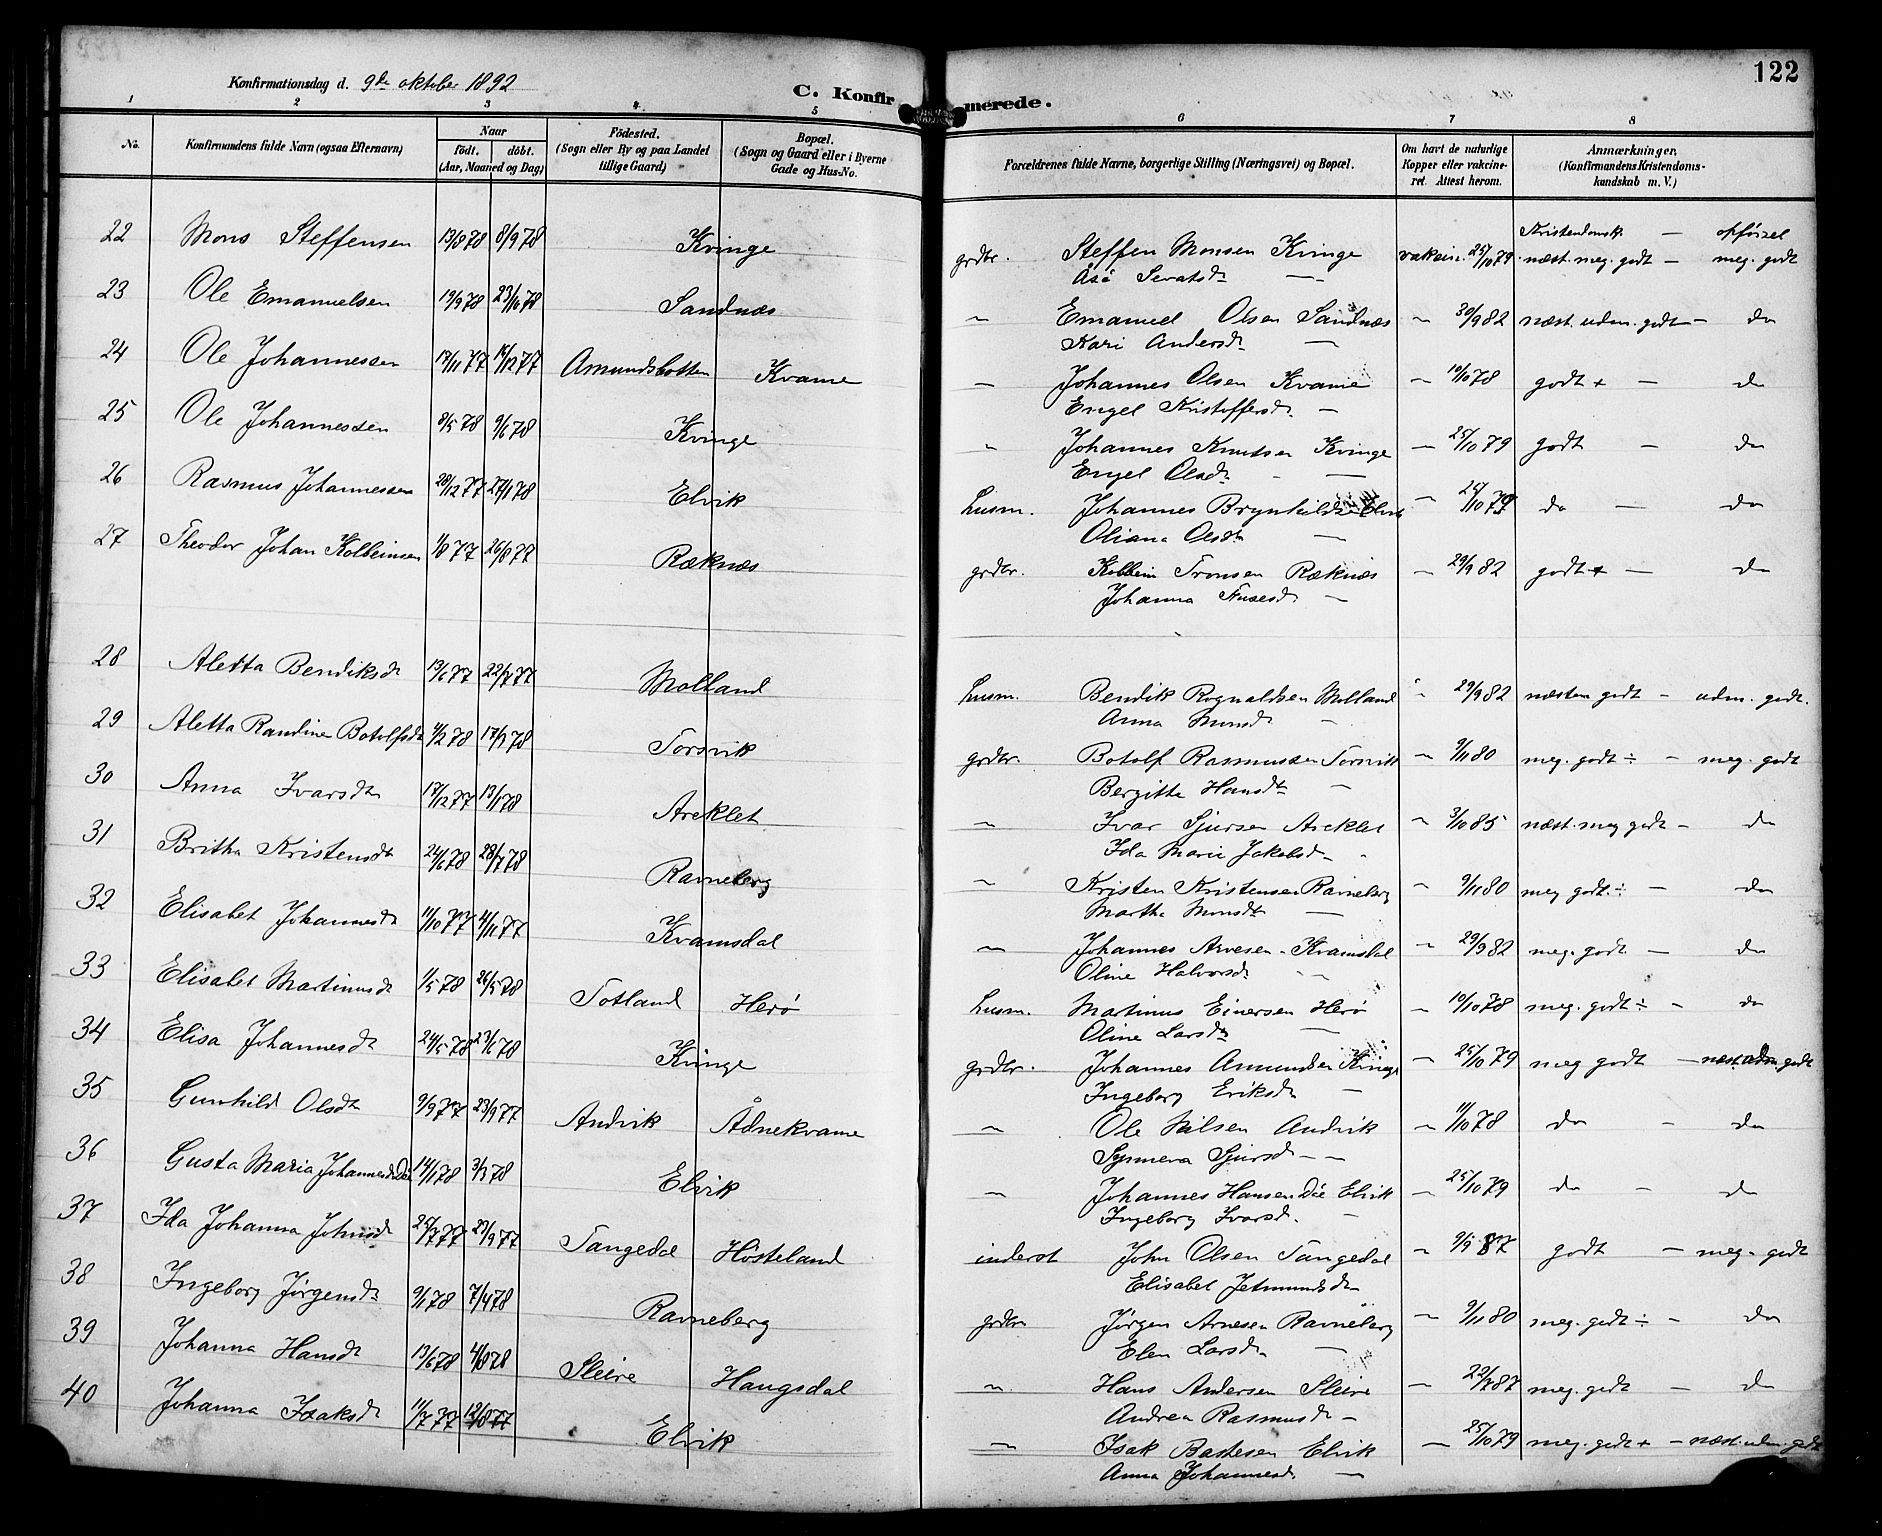 Konfirmationsdag d. 9de oktober 1892
C. Konfirmerede.
122
1 2 3 4 5 6 7 8
No.
Konfirmandens fulde Navn (ogsaa Efternavn)
Naar
födt. döbt.
(Aar, Maaned og Dag)
Födested.
(Sogn eller By og paa Landet
tillige Gaard)
Bopæl.
(Sogn og Gaard eller i Byerne
Gade og Hus-No.
Forældrenes fulde Navne, borgerlige Stilling (Næringsvei) og Bopæl.
Om havt de naturlige
Kopper eller vakcine-
ret. Attest herom.
Anmærkninger,
(Konfirmandens Kristendoms-
kundskab m. V.)
Kristendomsk. — opførsel
22 Mons Steffensen 13/8 78 8/9 78 Kvinge grdbr. Steffen Monsen Kvinge vakcin. 25/10 79 næst. meg. godt — meg. godt
Åsé Sevatsdt —
23 Ole Emanuelsen 19/9 78 23/10 78 Sandnæs " Emanuel Olsen Sandnæs — 30/9 82 næst. udm. godt — do
Kari Andersdt —
24 Ole Johannessen 17/11 77 14/12 77 Amundsbotten Kvame — Johannes Olsen Kvame — 10/10 78 godt + — do
Engel Kristoffersdt. —
25 Ole Johannessen 8/5 78 9/6 78 Kvinge " Johannes Knutsen Kvinge — 25/10 79 godt — do
Engel Olsdt —
26 Rasmus Johannessen 28/12 77 27/1 78 Elvik husm. Johannes Brynhilds Elvik — 24/10 79 do — do
Oliana Olsdt —
27 Theodor Johan Kolbeinsen 1/8 77 26/8 77 Ræknæs grdbr. Kolbein Tronsen Ræknæs — 29/9 82 godt + — do
Johanna —
28 Aletta Bendiksdt 13/6 77 22/7 77 Molland husm. Bendik Rognaldsen Molland " 29/9 82 næsten godt — udm. godt.
Anna Monsdt —
29 Aletta Randine Botolfsdt 4/2 78 17/3 78 Torsvik grdbr. Botolf Rasmussen Torsvik — 9/11 80 meg. godt ÷ — meg. godt
Bergitta Hansdt —
30 Anna Ivarsdt 17/12 77 13/1 78 Areklet — Ivar Sjursen Areklet — 3/10 85 næst. meg godt — do
Ida Marie Jakobsdt —
31 Britha Kristensdt 24/6 78 28/7 78 Ravneberg — Kristen Kristensen Ravneberg — 9/11 80 meg godt. ÷ — do
Martha Monsdt —
32 Elisabet Johannesdt 11/10 77 4/11 77 Kvamsdal — Johannes Arvesen Kvamsdal — 29/9 82 meg. godt — do
Oline Halvorsdt —
33 Elisabet Martinusdt 1/5 78 26/5 78 Totland Herø husm. Martinus Einersen Herø — 10/10 78 meg. godt ÷ — do
Oline Larsdt —
34 Elisa Johannesdt 24/5 78 23/6 78 Kvinge grdbr. Johannes Amundsen Kvinge — 25/10 79 meg godt — næst. udm. godt
Ingeborg Eriksdt —
35 Gunhild Olsdt 9/9 77 23/9 77 Andvik Ådnekvame — Ole Nilsen Andvik — 11/10 78 do — do
Synneva Sjursdt — —
36 Gusta Maria Johannesdt Die 14/1 78 3/3 78 Elvik — Johannes Hansen Die Elvik — 25/10 79 do — do
Ingeborg Ivarsdt. —
37 Ida Johanna Johnsdt 25/7 77 23/9 77 Tangedal Hosteland inderst John Olsen Tangedal — 9/9 87 godt — meg. godt
Elisabet Jetmundsdt
38 Ingeborg Jørgensdt 9/1 78 7/4 78 Ravneberg grdbr Jørgen Arnesen Ravneberg — 9/11 80 meg. godt ÷ — do
Elen Larsdt —
39 Johanna Hansdt 13/6 78 4/8 78 Sleire Haugsdal " Hans Andersen Sleire — 22/7 87 meg. godt — do
Andrea Rasmusdt —
40 Johanna Isaksdt 11/7 77 12/8 77 Elvik — Isak Bastesen Elvik — 25/10 79 meg. godt + — næst. udm. godt
Anna Johannesdt. —